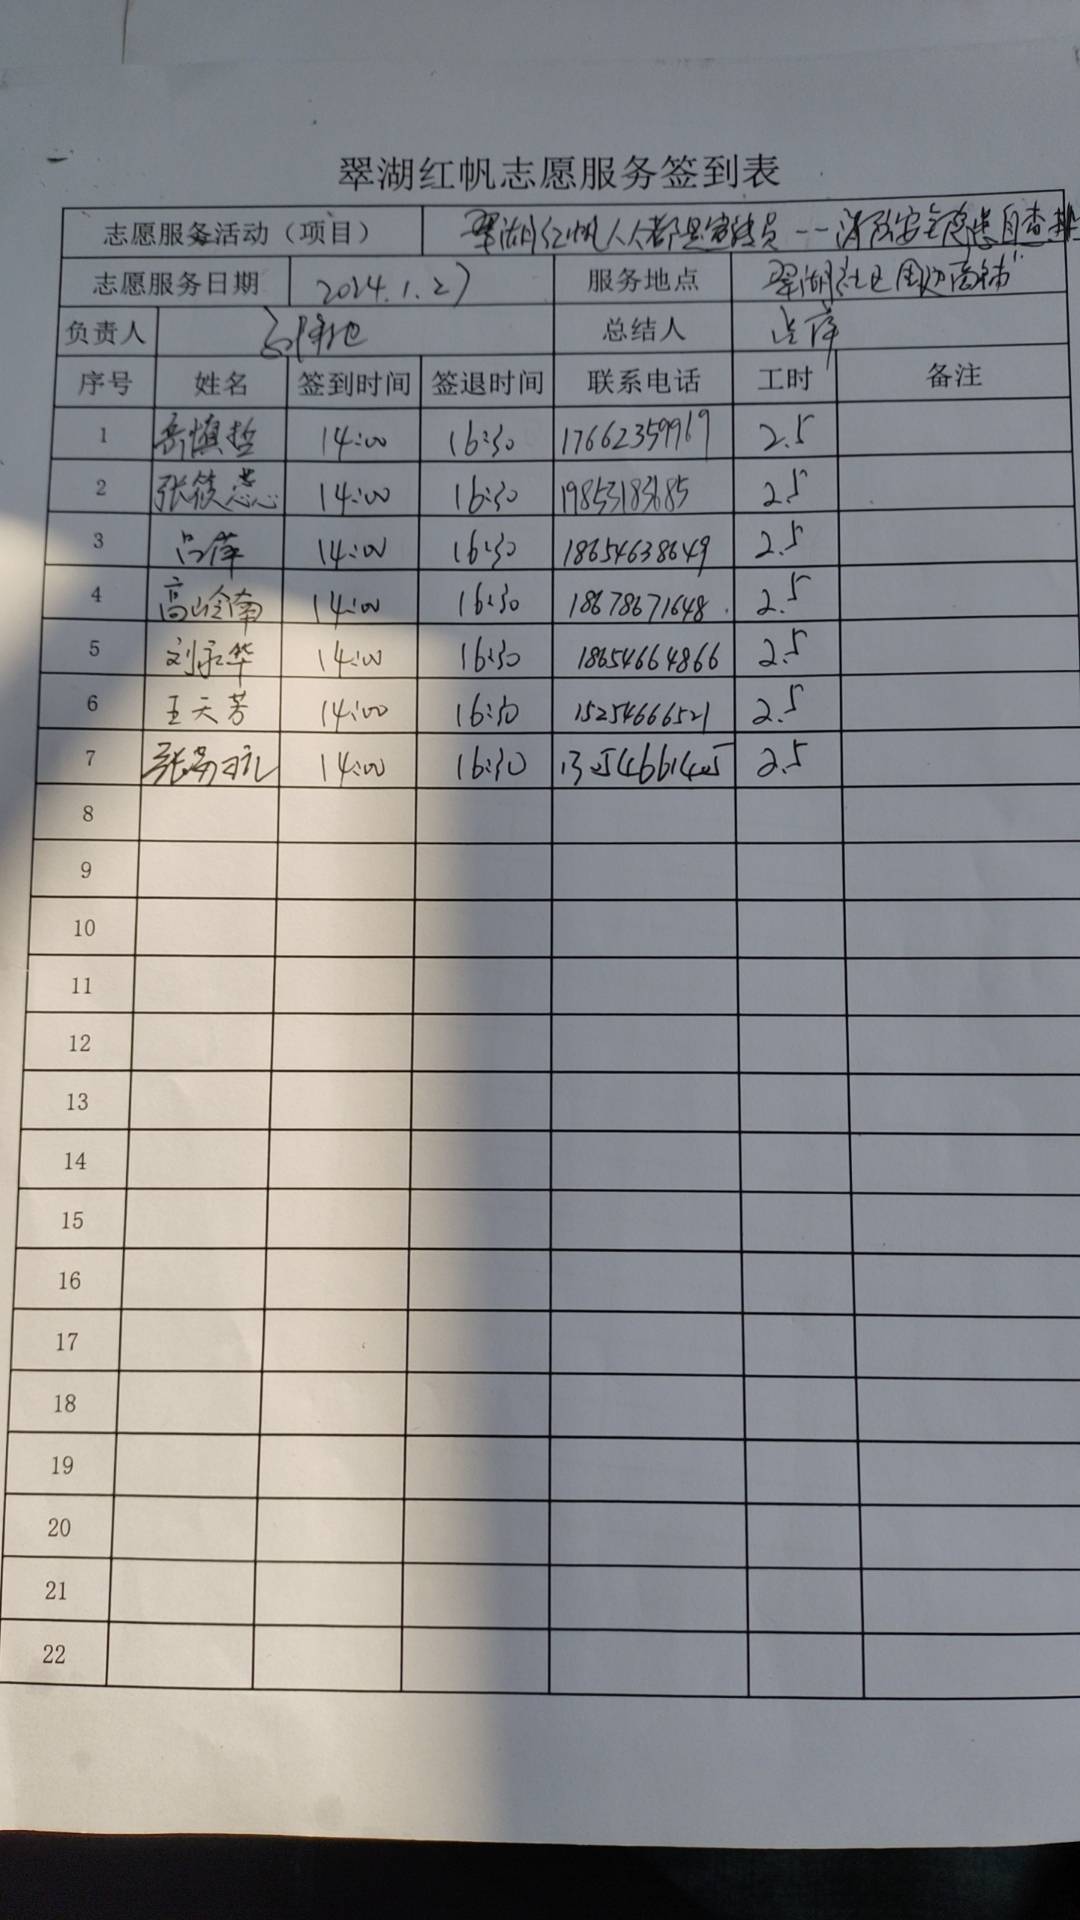 翠湖红帆志愿服务签到表
志愿服务活动（项目） 翠湖红帆人人都是宣传员--消防安全隐患自查排
志愿服务日期 2024.1.27 服务地点 翠湖社区周边商铺
负责人 总结人 吕萍
序号 姓名 签到时间 签退时间 联系电话 工时 备注
1 慎哲 14:00 16:30 17662359969 2.5
2 张筱蕊 14:00 16:30 19853183685 2.5
3 吕萍 14:00 16:30 18654638649 2.5
4 高岭南 14:00 16:30 18678671648 2.5
5 刘永华 14:00 16:30 18654664866 2.5
6 王天芳 14:00 16:30 15254666521 2.5
7 张 14:00 16:30 2.5
8
9
10
11
12
13
14
15
16
17
18
19
20
21
22